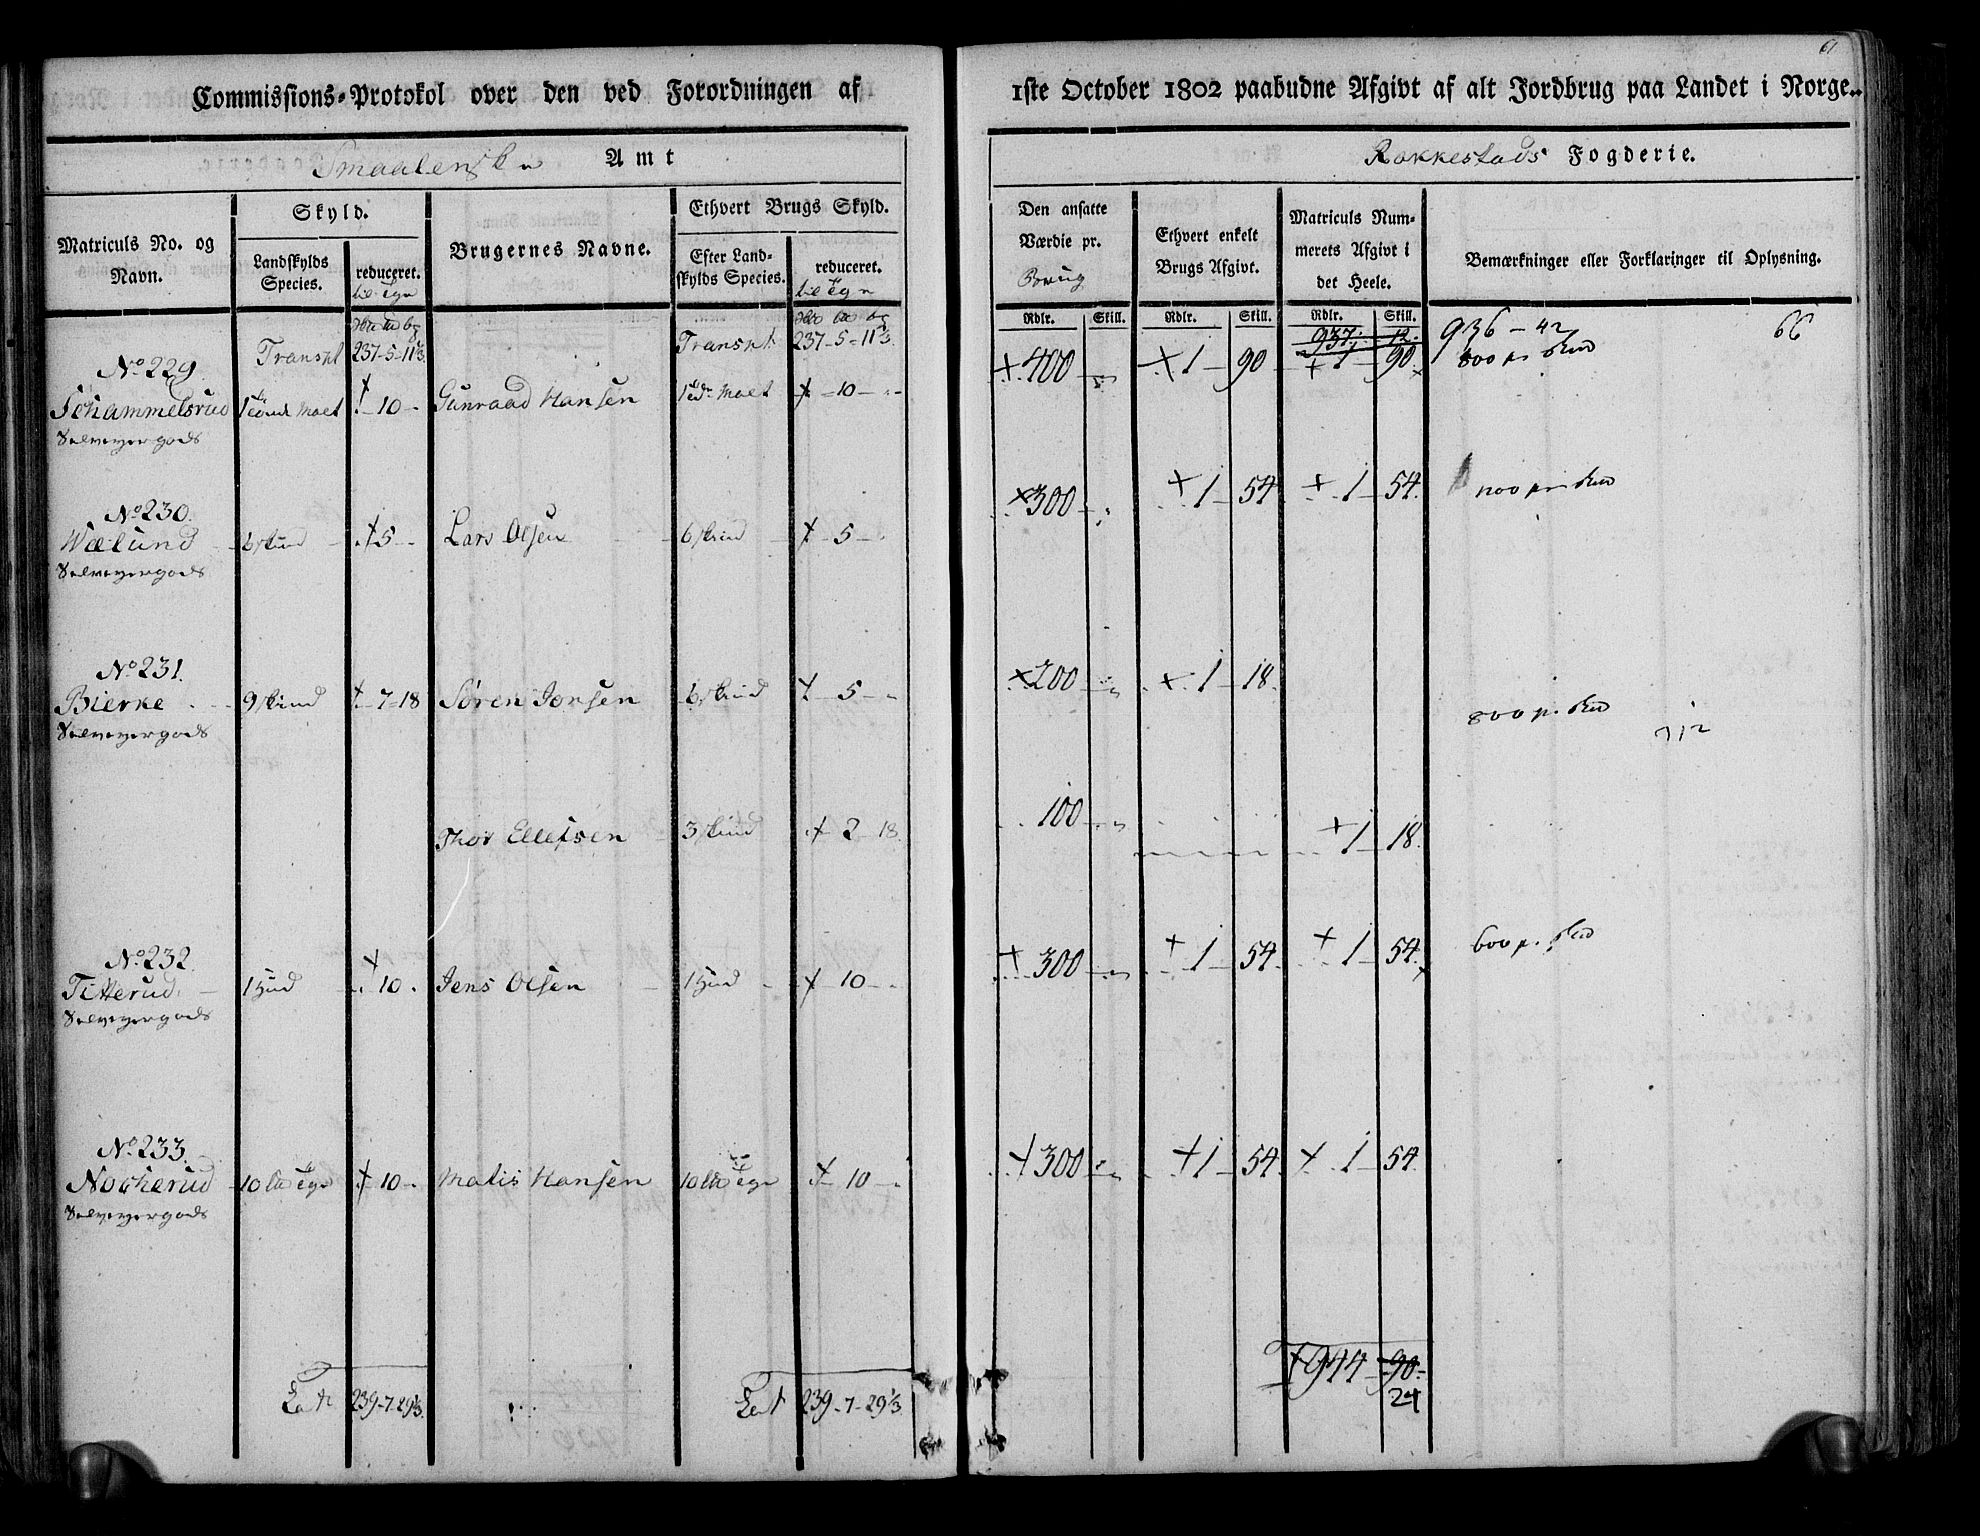 61
Commissions-Protokol over den ved Forordningen af
1ste October 1802 paabudne Afgivt af alt Jordbrug paa Landet i Norge.
Smaalenske Amt
Rakkestads Fogderie.
Matriculs No. og Navn.
Skyld.
Landskylds Species.
reduceret.
Brugernes Navne.
Ethvert Brugs Skyld.
Efter Landskylds Species.
reduceret.
Den ansatte Værdie pr. Brug
Rdlr. Skill.
Ethvert enkelt Brugs Afgivt.
Rdlr. Skill.
Matriculs Nummerets Afgivt i det Heele.
Rdlr. Skill.
Bemærkninger eller Forklaringer til Oplysning.
Transpt 237-5-11 1/3 Transpt 237-5-11 1/3 937. 12. 936-42 66
No 229.
Schammelsrud 10 Gunraad Hansen 10 400 1 90 1 90 800
Selveyergods
No 230.
Wælund 6 skind 5 Lars Olsen 6 skind 5 300 1 54 1 54
Selveyergods
No 231.
Bierke 9 skind 7-18 Søren Jonsen 6 skind 5 200 1 18 800
Selveyergods
712
Thor Ellefsen 3 skind 2 18 100 1 18
No 232.
Titterud 1 Hud 10 Jens Olsen 1 Hud 10 300 1 54 1 54 600
Selveyergods
No 233.
10 10 Matis Hansen 10 10 300 1 54 1 54
Selveyergods
239-7-29 1/3 239-7-29 1/3 944 90
24